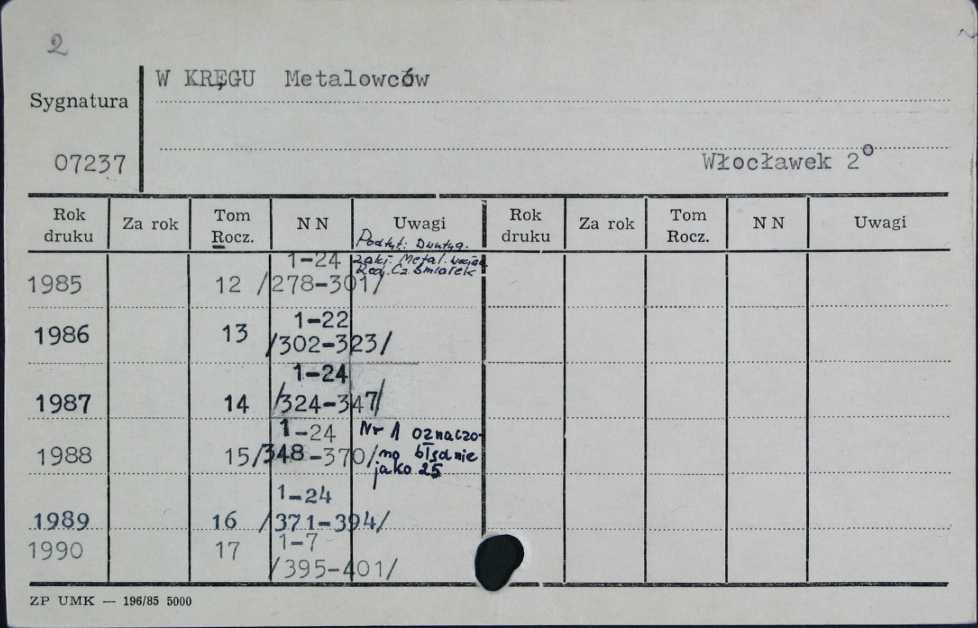 2
W KRĘGU Metalowców
Sygnatura
07237
Włocławek 2°
Rok druku Za rok Tom Rocz. NN Uwagi Rok druku Za rok Tom Rocz. NN Uwagi
Podtyt: Dwutyg.
zakł. Metal.
Red. Cz. Śmiałek
1985 12 1-24 /278-301/
1986 13 1-22 /302-323/
1987 14 1-24 /324-347/
1988 15 1-24 /348-370/
Nr 1 oznaczo-
no błędnie
jako 25
1989 16 1-24 /371-394/
1990 17 1-7 /395-401/
ZP UMK — 196/85 5000